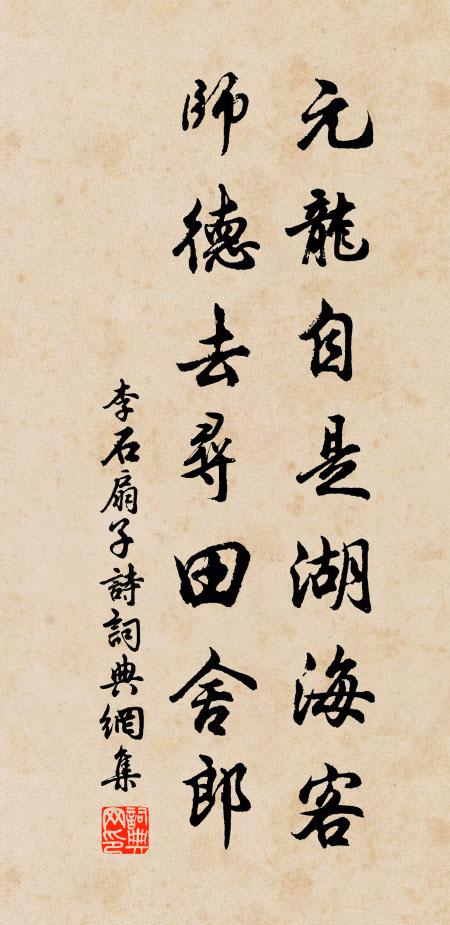 元龍自是湖海客
師德去尋田舍郎
李石扇子詩詞典網集
詞典網印